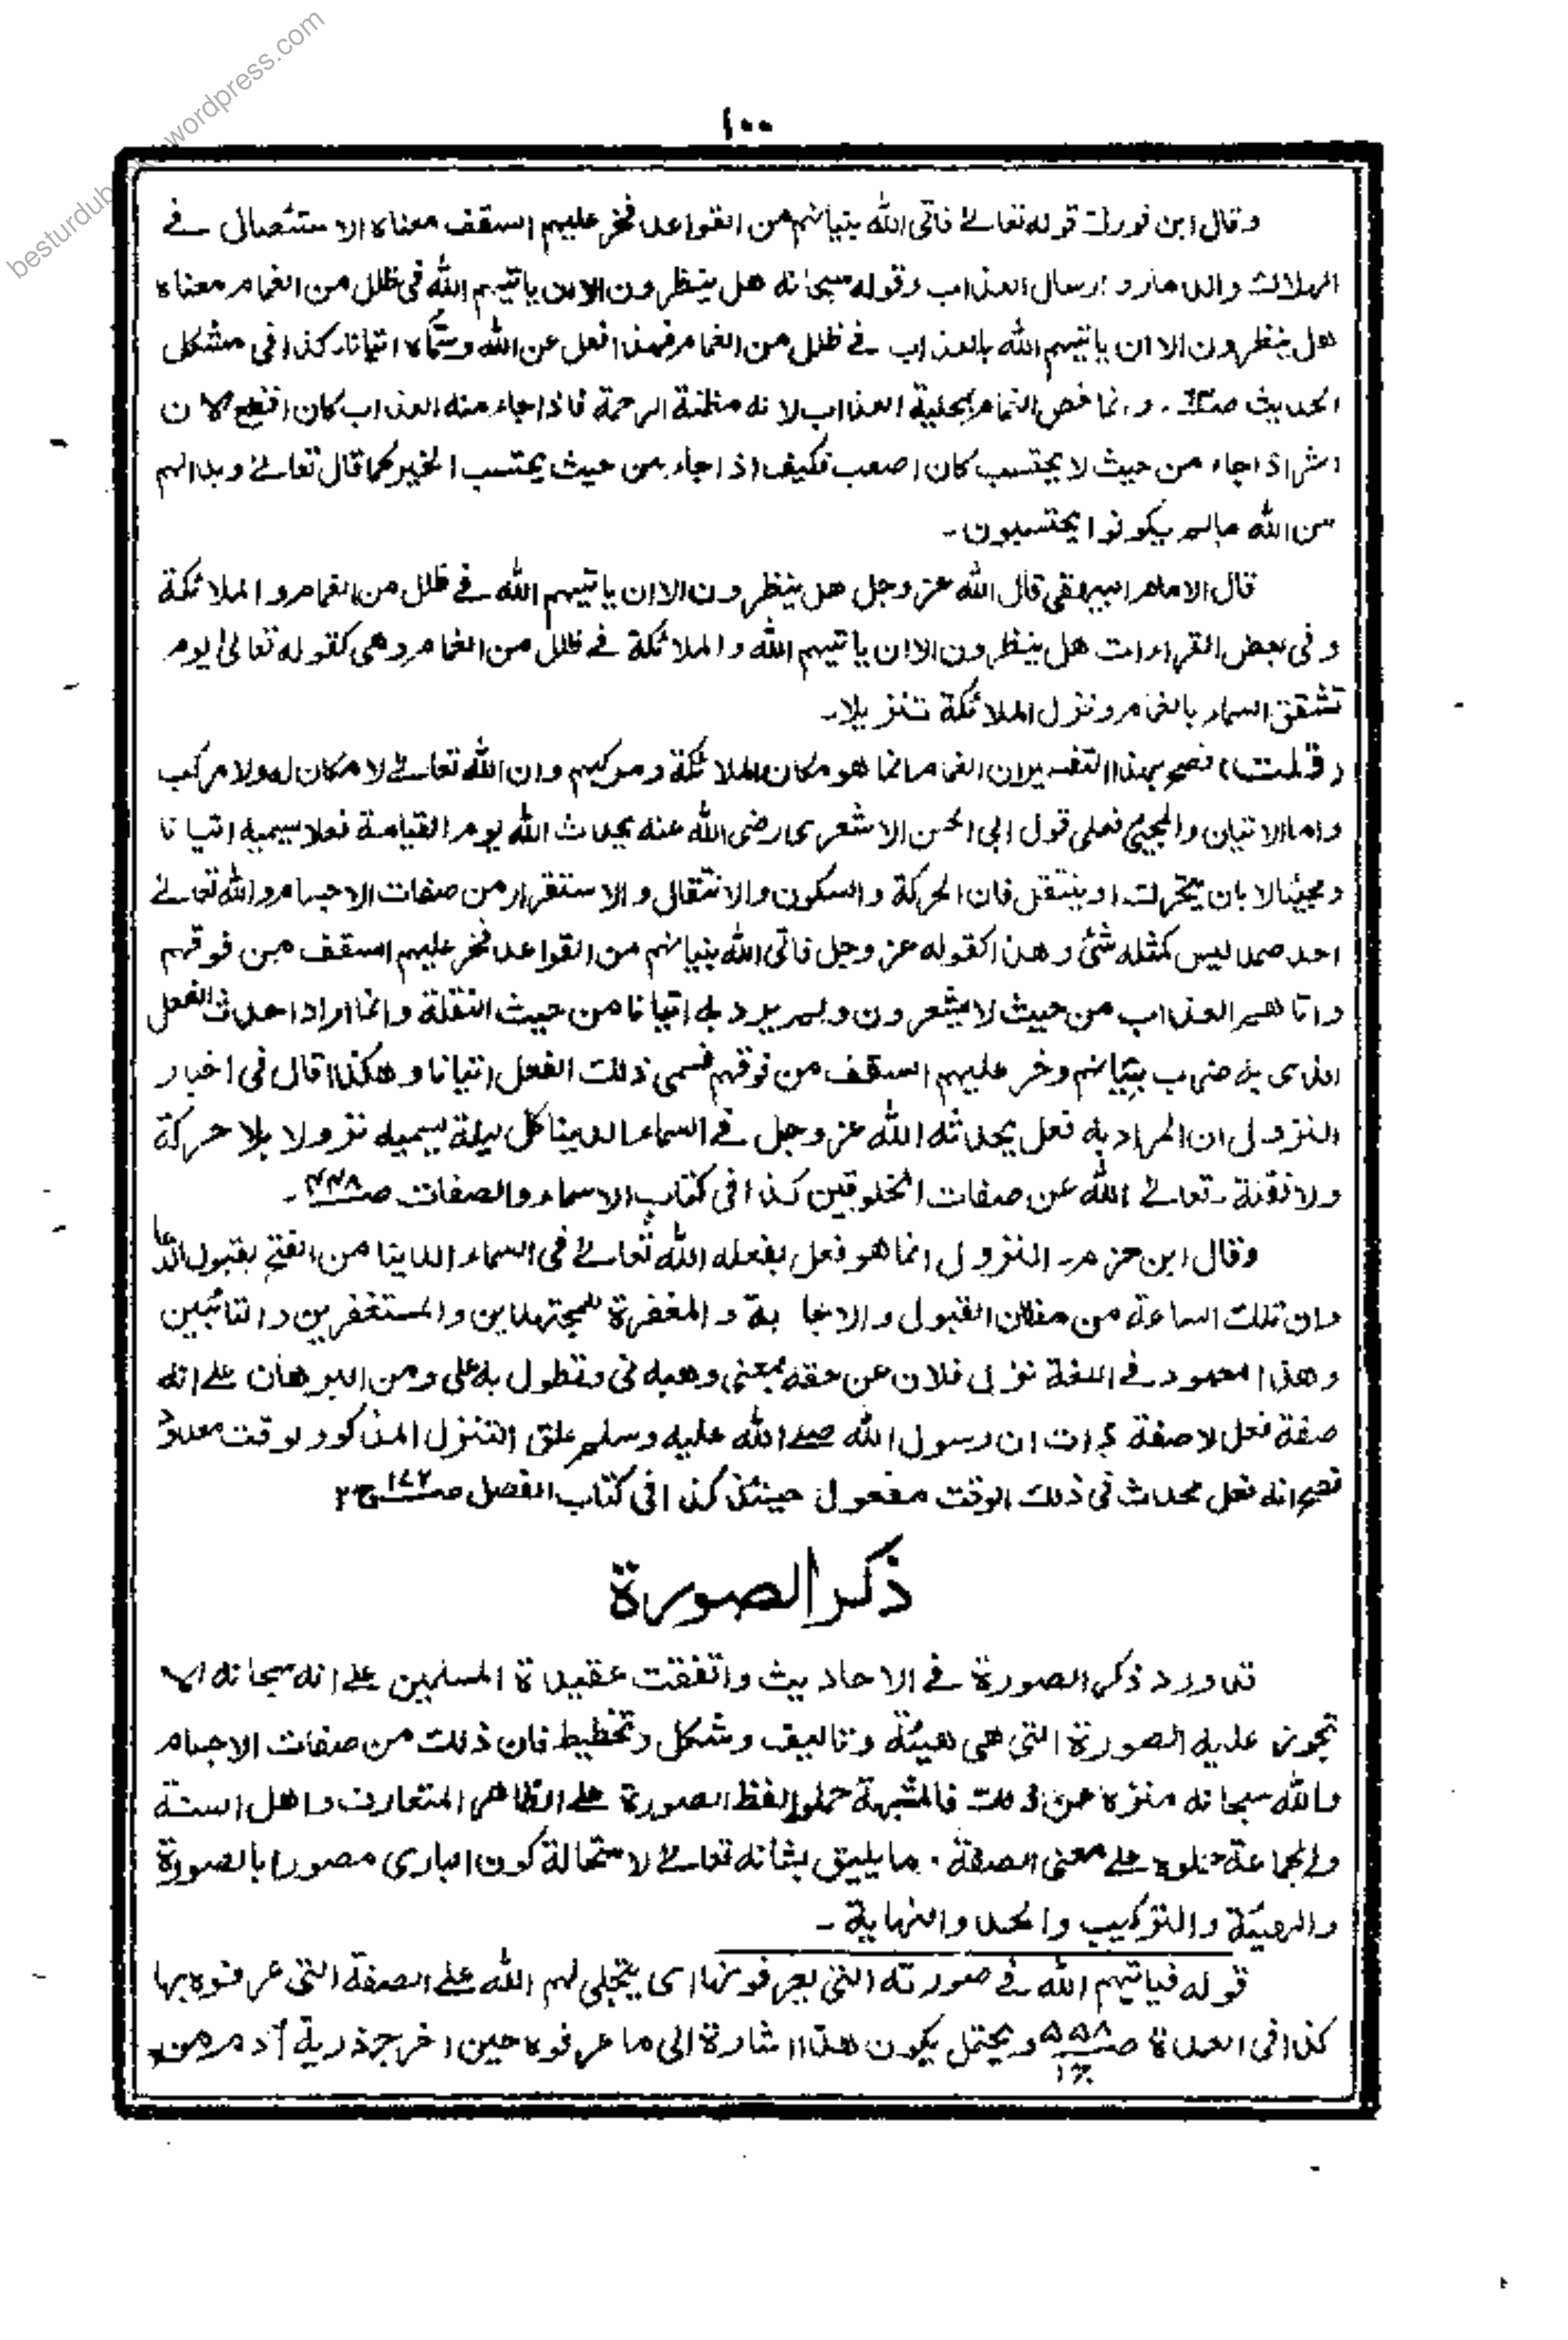 besturdub wordpress.com
١٠٠
وقال ابن فورك قوله تعالى فاتى الله بنيانهم من القواعد فخر عليهم السقف معناه الاستئصال فى
الهلاك والدمار و ارسال العذاب وقوله سبحانه هل ينظرون الا ان ياتيهم الله فى ظلل من الغمام معناه
هل ينظرون الا ان ياتيهم الله بالعذاب فى ظلل من الغمام فهذا فعل عن الله وسماه اتيانا۔ كذا فى مشكل
الحديث و انما خص الغمام لانه مظنة الرحمة فاذا جاء منه العذاب كان افظع لان
الشر اذا جاء من حيث لا يحتسب كان اصعب فكيف اذا جاء من حيث يحتسب الخير كما قال تعالى وبدا لهم
من الله مالم يكونوا يحتسبون۔
قال الامام البيهقى قال الله عز وجل هل ينظرون الا ان ياتيهم الله فى ظلل من الغمام و الملائكة
وفى بعض القراءات هل ينظرون الا ان ياتيهم الله والملائكة فى ظلل من الغمام وهى كقوله تعالى يوم
تشقق السماء بالغمام ونزل الملائكة تنزيلا۔
(قلت) فصح بهذا التفسير ان الغمام انما هو مكان الملائكة ومركبهم وان الله تعالى لا مكان له ولا مركب
واما الاتيان والمجيئ فعلى قول ابى الحسن الاشعرى رضى الله عنه يحدث الله يوم القيامة فعلا يسميه اتيانا
ومجيئا لا بان يتحرك او ينتقل فان الحركة والسكون والانتقال والاستقرار من صفات الاجسام والله تعالى
احد صمد ليس كمثله شئ وهذا كقوله عز وجل فاتى الله بنيانهم من القواعد فخر عليهم السقف من فوقهم
واتاهم العذاب من حيث لا يشعرون ولم يرد به اتيانا من حيث النقلة وانما اراد احداث الفعل
الذى به خرب بنيانهم وخر عليهم السقف من فوقهم فسمى ذلك الفعل اتيانا وهكذا قال فى اخبار
النزول ان المراد به فعل يحدثه الله عز وجل فى السماء الدنيا كل ليلة يسميه نزولا بلا حركة
ولا نقلة۔ تعالى الله عن صفات المخلوقين كذا فى كتاب الاسماء والصفات صـ٤٤٨۔
وقال ابن حزم۔ النزول انما هو فعل يفعله الله تعالى فى السماء الدنيا من الفتح بقبول الدعا
وان تلك الساعة من مظان القبول والاجابة والمغفرة للمجتهدين والمستغفرين والتائبين
وهذا معهود فى اللغة نزل فلان عن حقه بمعنى وهبه لى وتطول به على ومن البرهان على انه
صفة فعل لا صفة ذات ان رسول الله صلى الله عليه وسلم علق التنزل المذكور لوقت محدود
فصح انه فعل محدث فى ذلك الوقت مفعول حينئذ كذا فى كتاب الفصل صـ١٧٢ ج٢
ذكر الصورة
قد ورد ذكر الصورة فى الاحاديث واتفقت عقيدة المسلمين على انه سبحانه لا
تجوز عليه الصورة التى هى هيئة وتاليف وشكل وتخطيط فان ذلك من صفات الاجسام
والله سبحانه منزه عن ذلك فالمشبهة حملوا لفظ الصورة على الظاهر المتعارف واهل السنة
والجماعة حملوه على معنى الصفة۔ ما يليق بشانه تعالى لاستحالة كون البارى مصورا بالصورة
والهيئة والتركيب والحد والنهاية۔
قوله فياتيهم الله فى صورته التى يعرفونها اى يتجلى لهم الله على الصفة التى عرفوه بها
كذا فى العمدة صـ٥٥٨ ج١ ويحتمل يكون هذا اشارة الى ما عرفوه حين اخرج ذرية آدم من